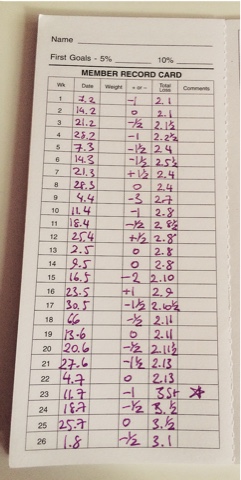 Name
First Goals - 5% 10%
MEMBER RECORD CARD
Wk Date Weight + or – Total Loss Comments
1 7.2 -1 2.1
2 14.2 0 2.1
3 21.2 -½ 2.1½
4 28.2 -1 2.2½
5 7.3 -1½ 2.4
6 14.3 -1½ 2.5½
7 21.3 +1½ 2.4
8 28.3 0 2.4
9 4.4 -3 2.7
10 11.4 -1 2.8
11 18.4 -½ 2.8½
12 25.4 +½ 2.8
13 2.5 0 2.8
14 9.5 0 2.8
15 16.5 -2 2.10
16 23.5 +1 2.9
17 30.5 -1½ 2.10½
18 6.6 -½ 2.11
19 13.6 0 2.11
20 20.6 -½ 2.11½
21 27.6 -1½ 2.13
22 4.7 0 2.13
23 11.7 -1 3st
24 18.7 -½ 3.½
25 25.7 0 3.½
26 1.8 -½ 3.1